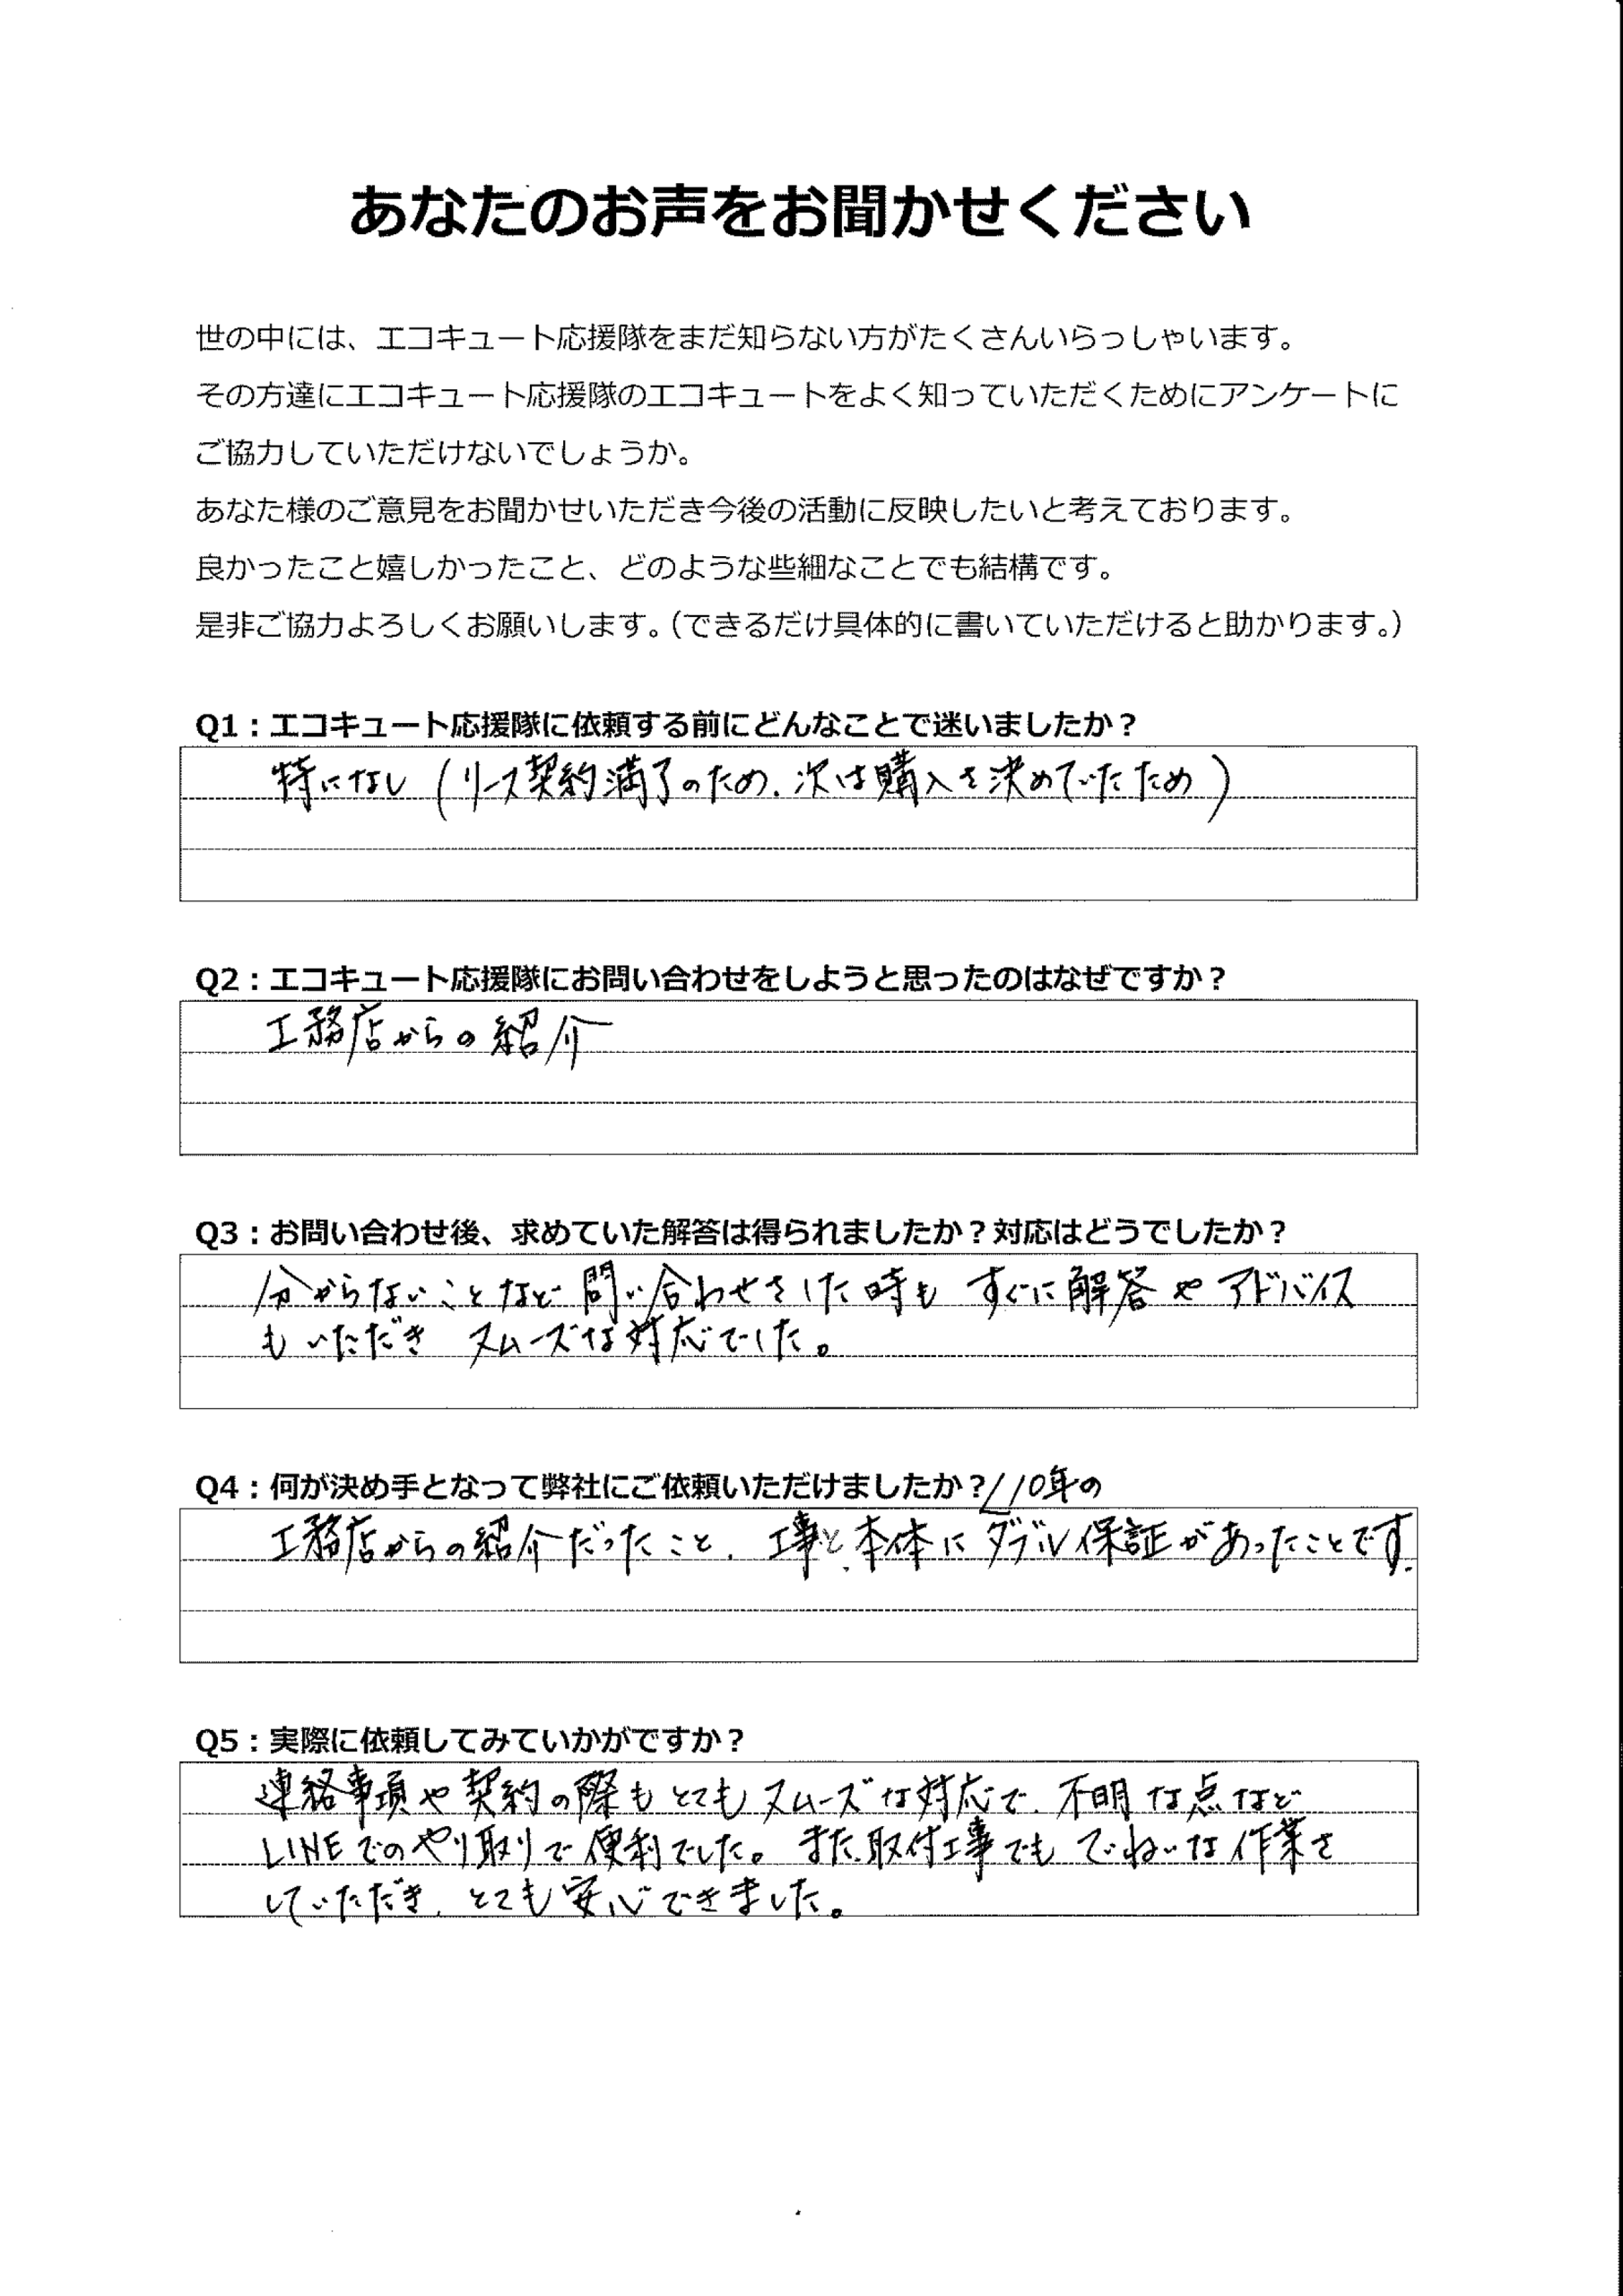 あなたのお声をお聞かせください
世の中には、エコキュート応援隊をまだ知らない方がたくさんいらっしゃいます。
その方達にエコキュート応援隊のエコキュートをよく知っていただくためにアンケートに
ご協力していただけないでしょうか。
あなた様のご意見をお聞かせいただき今後の活動に反映したいと考えております。
良かったこと嬉しかったこと、どのような些細なことでも結構です。
是非ご協力よろしくお願いします。（できるだけ具体的に書いていただけると助かります。）
Q1：エコキュート応援隊に依頼する前にどんなことで迷いましたか？
特になし（リース契約満了のため、次は購入を決めていたため）
Q2：エコキュート応援隊にお問い合わせをしようと思ったのはなぜですか？
工務店からの紹介
Q3：お問い合わせ後、求めていた解答は得られましたか？対応はどうでしたか？
分からないことなど問い合わせをした時も すぐに解答やアドバイス
もいただき スムーズな対応でした。
Q4：何が決め手となって弊社にご依頼いただけましたか？
10年の
工務店からの紹介だったこと、工事と、本体にダブル保証があったことです。
Q5：実際に依頼してみていかがですか？
連絡事項や契約の際もとてもスムーズな対応で、不明な点など
LINEでのやり取りで便利でした。また、取付工事でもていねいな作業を
していただき、とても安心できました。